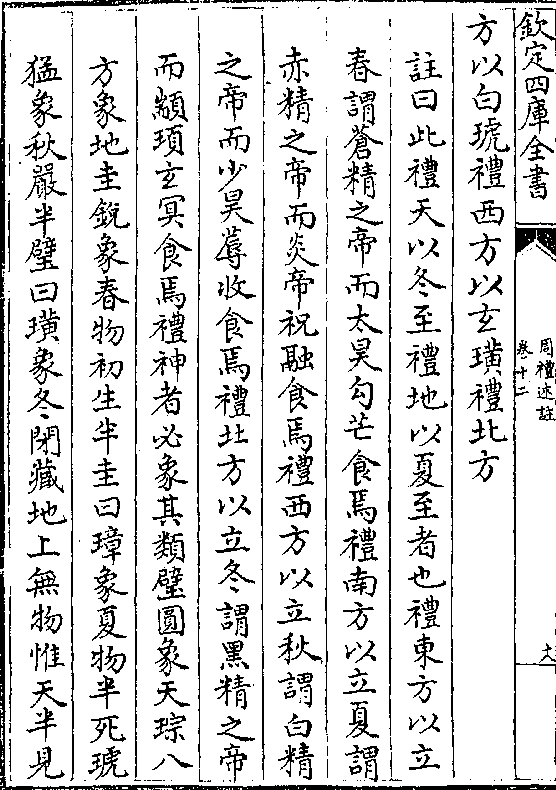 欽定四庫全書
周禮述註
卷十二
方以白琥禮西方以玄璜禮北方
註曰此禮天以冬至禮地以夏至者也禮東方以立
春謂蒼精之帝而太昊勾芒食焉禮南方以立夏謂
赤精之帝而炎帝祝融食焉禮西方以立秋謂白精
之帝而少昊蓐收食焉禮北方以立冬謂黑精之帝
而顓頊玄冥食焉禮神者必象其類璧圓象天琮八
方象地圭銳象春物初生半圭曰璋象夏物半死琥
猛象秋嚴半璧曰璜象冬閉藏地上無物惟天半見